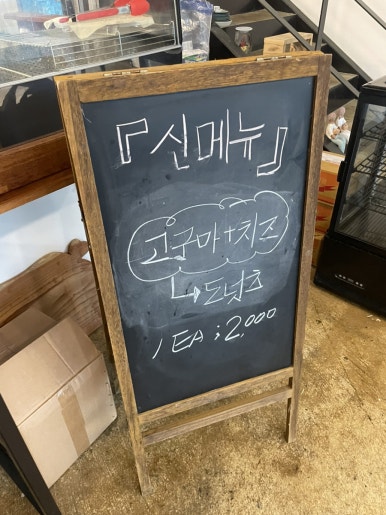 『신메뉴』
고구마+치즈
↳도넛츠
1EA ; 2,000